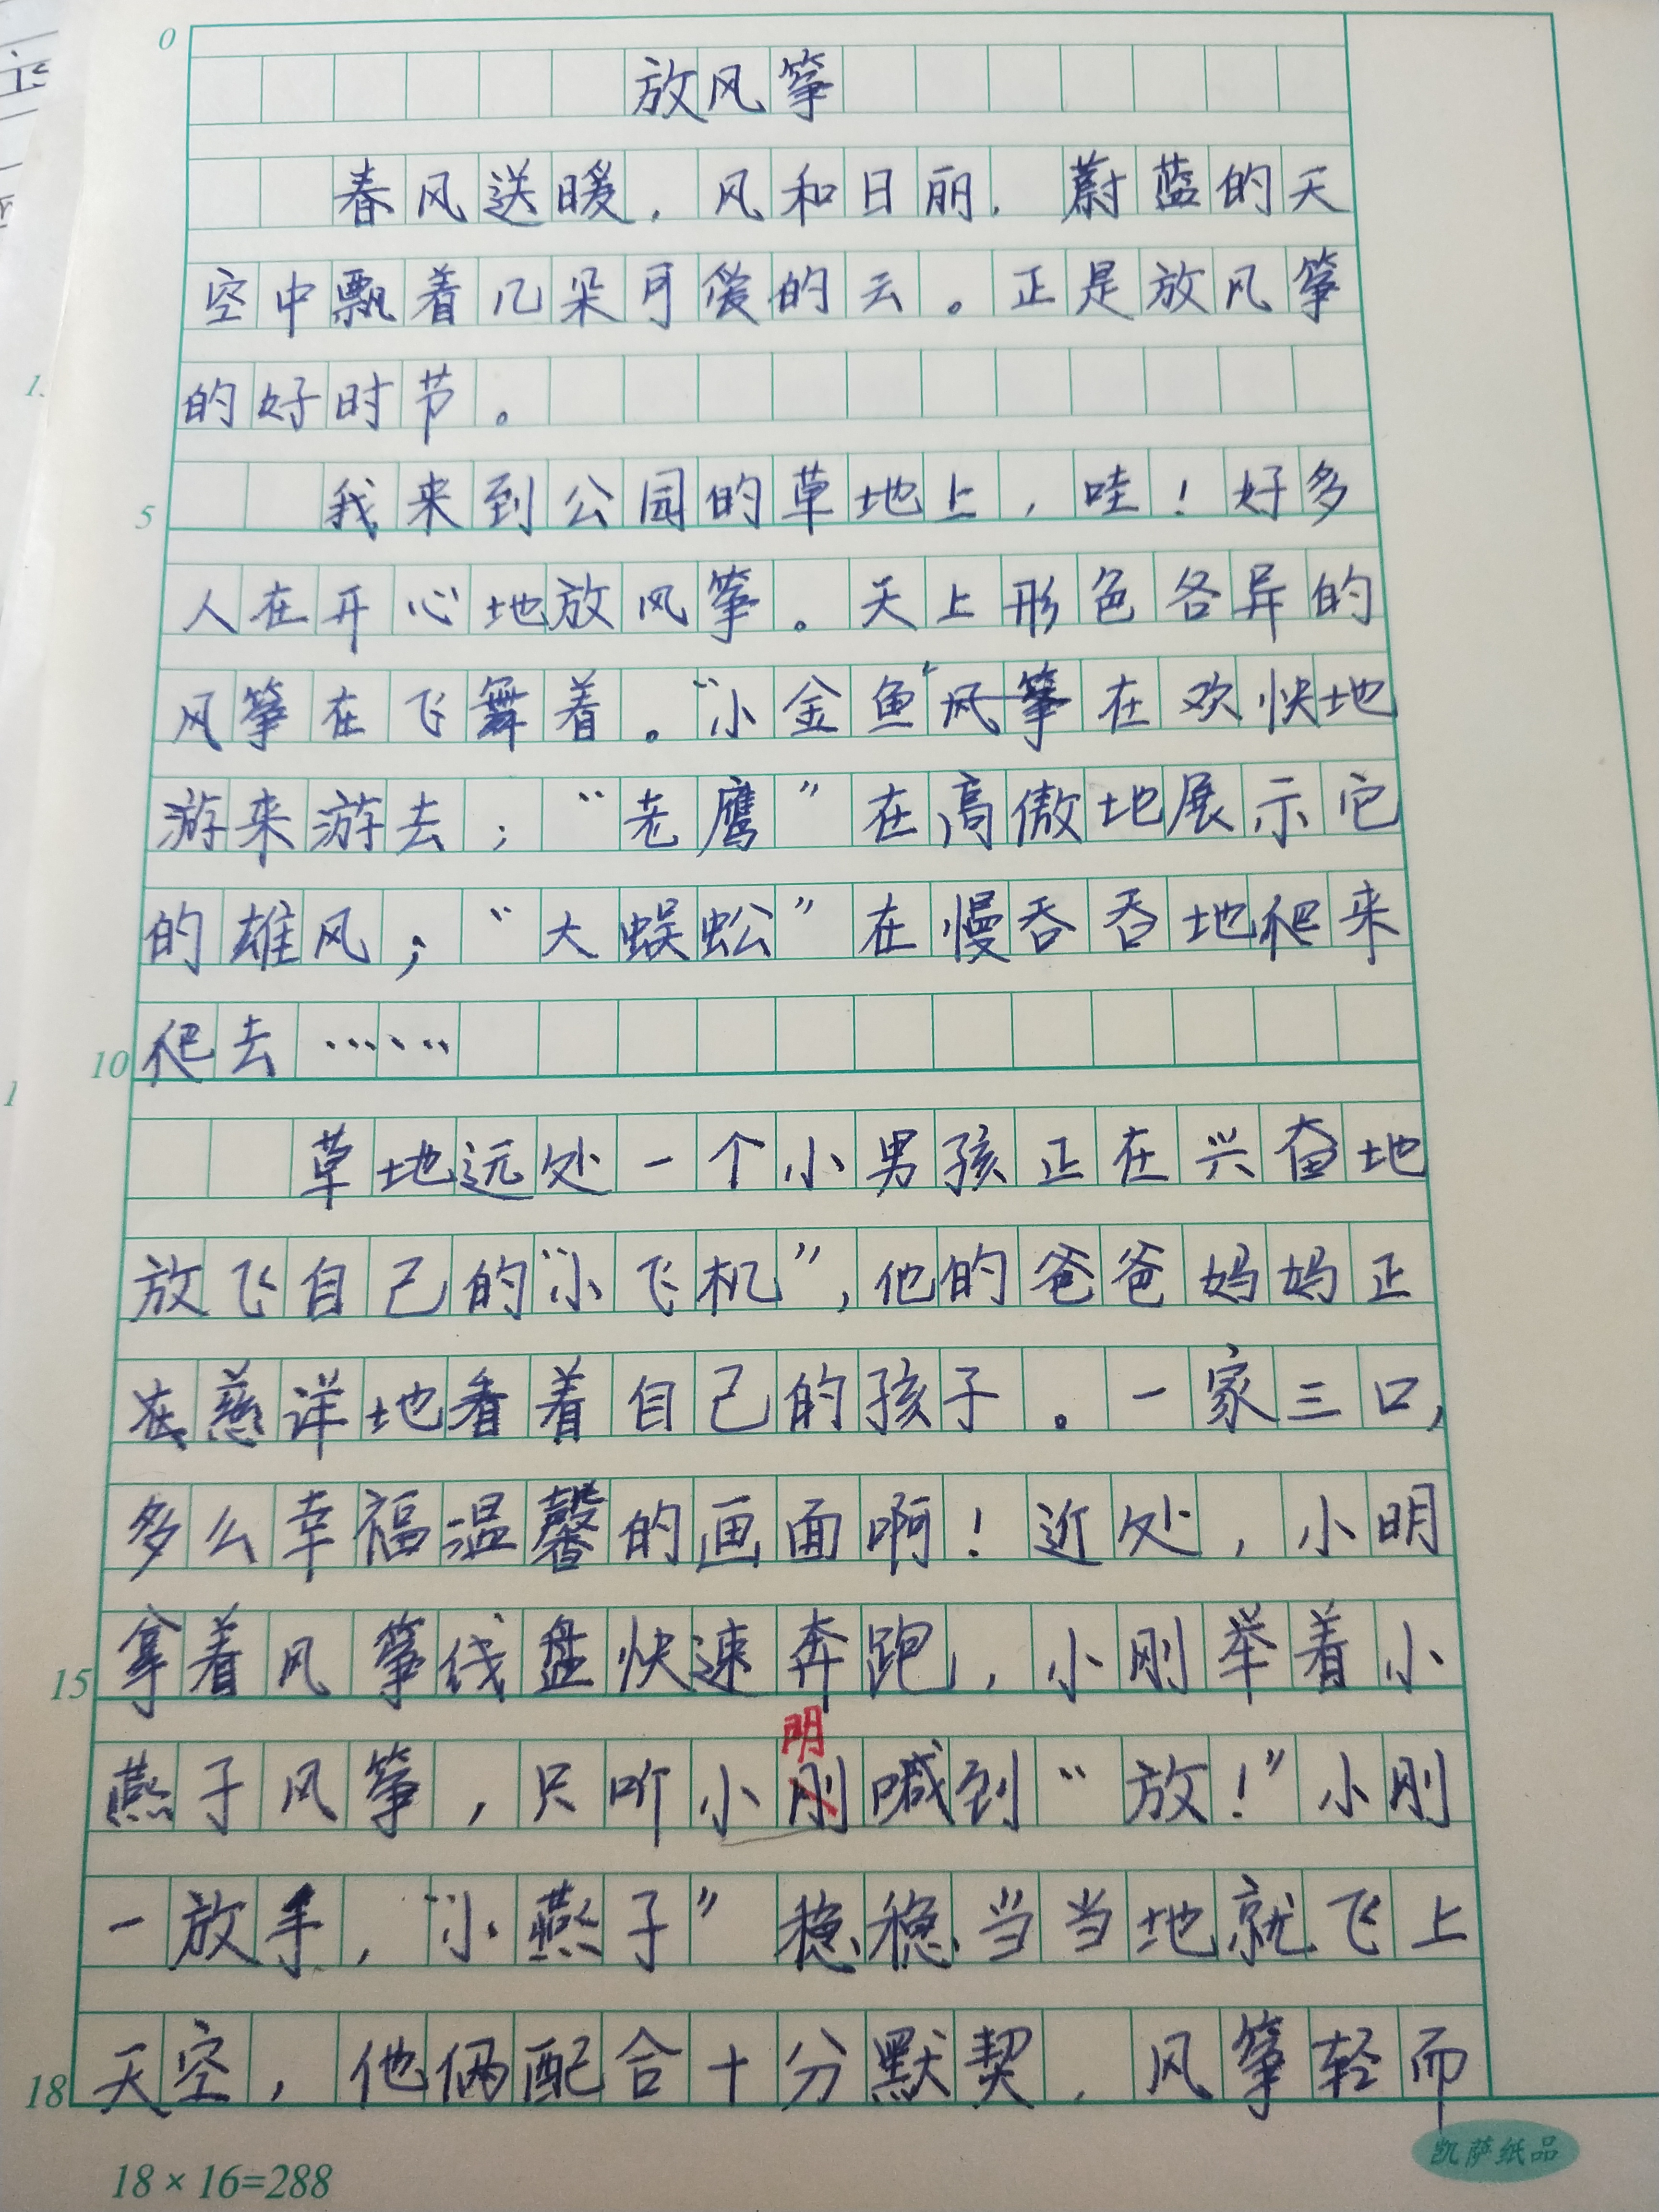 0
放风筝
春风送暖，风和日丽，蔚蓝的天
空中飘着几朵可爱的云。正是放风筝
的好时节。
5
我来到公园的草地上，哇！好多
人在开心地放风筝。天上形色各异的
风筝在飞舞着。“小金鱼”风筝在欢快地
游来游去；“老鹰”在高傲地展示它
的雄风；“大蜈蚣”在慢吞吞地爬来
10
爬去……
草地远处一个小男孩正在兴奋地
放飞自己的“小飞机”，他的爸爸妈妈正
在慈详地看着自己的孩子。一家三口，
多么幸福温馨的画面啊！近处，小明
15
拿着风筝线盘快速奔跑，小刚举着小
明
燕子风筝，只听小刚喊到“放！”小刚
一放手，“小燕子”稳稳当当地就飞上
18
天空，他俩配合十分默契，风筝轻而
凯萨纸品
18×16=288